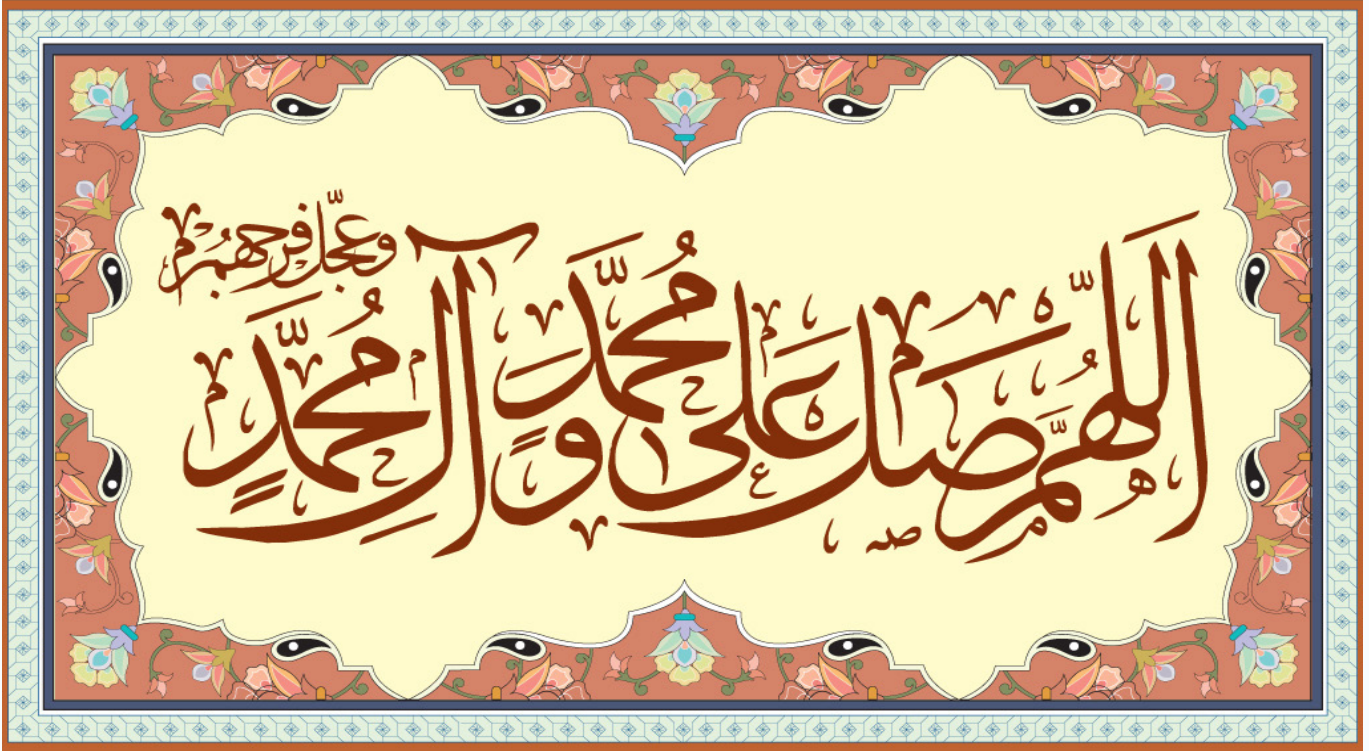 اَللّٰهُمَّ صَلِّ عَلَى مُحَمَّدٍ وَ آلِ مُحَمَّدٍ
وَ عَجِّل فَرَجَهُم